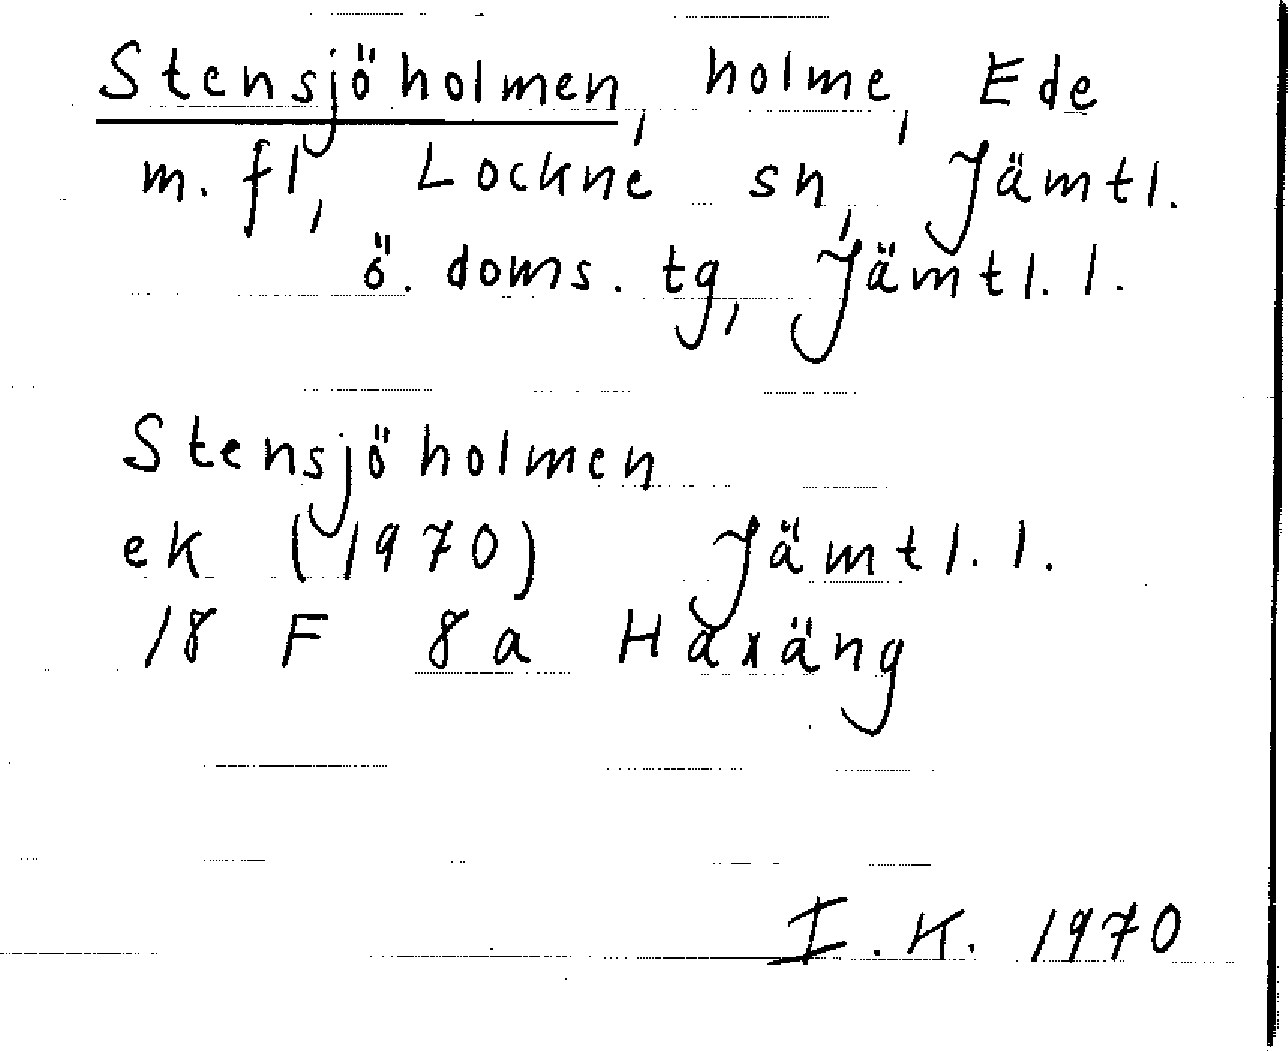 Stensjöholmen, holme, Ede
m. fl, Lockne sn, Jämtl.
ö. doms. tg, Jämtl. l.
Stensjöholmen
ek (1970) Jämtl. l.
18 F 8a Haxäng
I. K. 1970